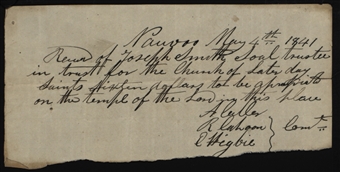 Nauvoo May 4th 1841
Recvd of Joseph Smith Soal trustee
in trust for the Church of Later day
Saints sixteen dollars to be apropriated
on the templ of the Lord in this place
A Cutler
R Cahoon
E Higbie
Comt.